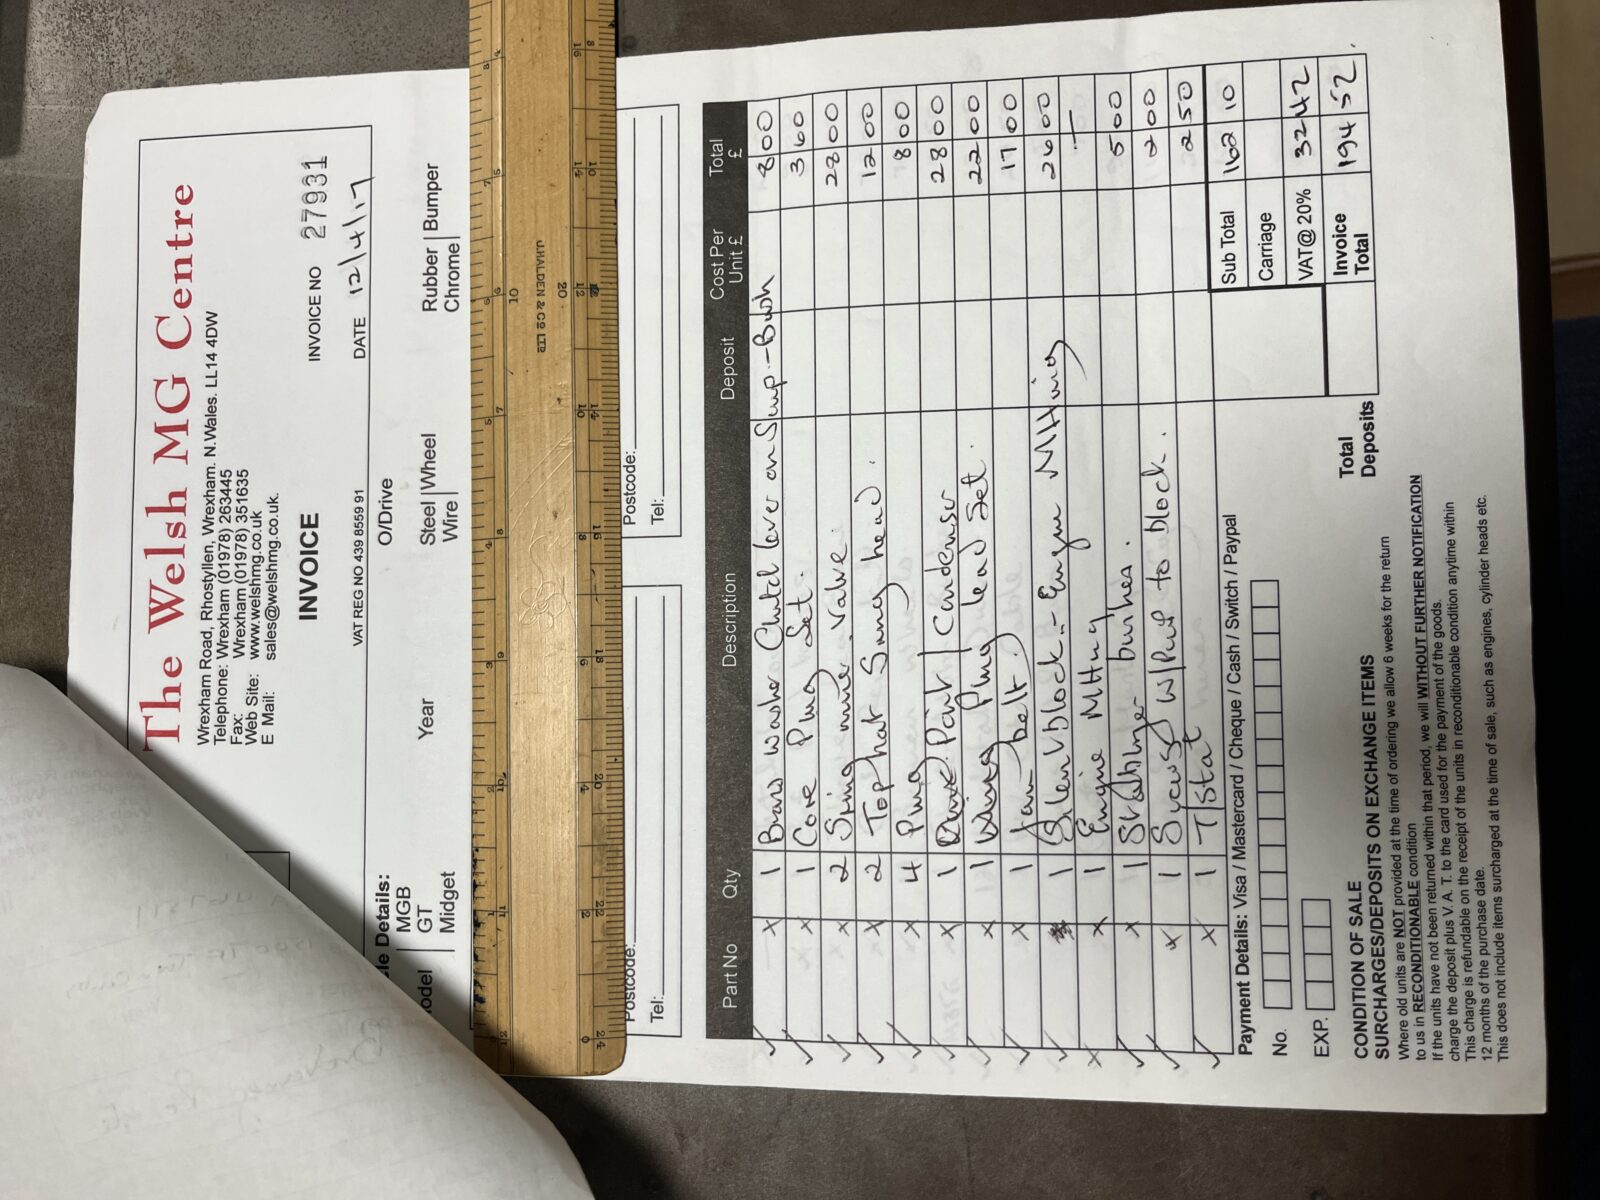 The Welsh MG Centre
Wrexham Road, Rhostyllen, Wrexham. N.Wales. LL14 4DW
Telephone: Wrexham (01978) 263445
Fax: Wrexham (01978) 351635
Web Site: www.welshmg.co.uk
E Mail: sales@welshmg.co.uk.
INVOICE
INVOICE NO 27931
VAT REG NO 439 8559 91
DATE 12/4/17
Details:
MGB
GT
Midget
Year
O/Drive
Steel Wheel
Wire
Rubber Bumper
Chrome
CHALDEN & CO LTD
Postcode:
Tel:
Postcode:
Tel:
Part No Qty Description Deposit Cost Per Unit £ Total £
x 1 Brass washer Clutch lever on Sump-Bush 8 00
x 1 Core Plug Set. 3 60
x 2 Spring Valve. 28 00
x 2 Top hat head. 12 00
x 4 Plug 8 00
x 1 Point / Condenser 28 00
x 1 Plug lead Set. 22 00
x 1 fan belt. 17 00
1 Silentblock - Engine Mtting 26 00
x 1 Engine Mtting —
x 1 bushes. 5 00
x 1 W/Pump to block. 2 00
x 1 TStat 2 50
Payment Details: Visa / Mastercard / Cheque / Cash / Switch / Paypal
No.
EXP.
Sub Total 162 10
Carriage
VAT@ 20% 32 42
Invoice Total 194 52
Total Deposits
CONDITION OF SALE
SURCHARGES/DEPOSITS ON EXCHANGE ITEMS
Where old units are NOT provided at the time of ordering we allow 6 weeks for the return
to us in RECONDITIONABLE condition
If the units have not been returned within that period, we will WITHOUT FURTHER NOTIFICATION
charge the deposit plus V. A. T. to the card used for the payment of the goods.
This charge is refundable on the receipt of the units in reconditionable condition anytime within
12 months of the purchase date.
This does not include items surcharged at the time of sale, such as engines, cylinder heads etc.